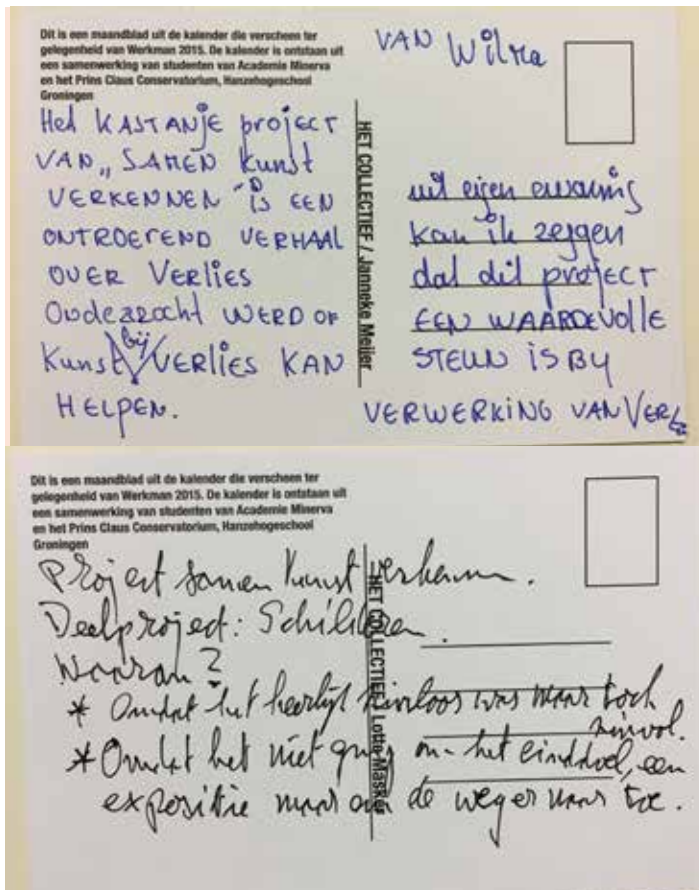 Dit is een maandblad uit de kalender die verscheen ter
gelegenheid van Werkman 2015. De kalender is ontstaan uit
een samenwerking van studenten van Academie Minerva
en het Prins Claus Conservatorium, Hanzehogeschool
Groningen
VAN Wilma
Het KASTANJE project
VAN „ SAMEN Kunst
VERKENNEN" IS EEN
ONTROEREND VERHAAL
OVER Verlies
Onderzocht WERD OF
Kunst bij VERLIES KAN
HELPEN.
HET COLLECTIEF / Janneke Meijer
uit eigen ervaring
kan ik zeggen
dat dit project
EEN WAARDEVOLLE
STEUN IS BY
VERWERKING VAN Verlies
Dit is een maandblad uit de kalender die verscheen ter
gelegenheid van Werkman 2015. De kalender is ontstaan uit
een samenwerking van studenten van Academie Minerva
en het Prins Claus Conservatorium, Hanzehogeschool
Groningen
Project samen Kunst verkennen.
Deelproject: Schilderen.
Waarom?
* Omdat het heerlijk zinloos was maar toch
zinvol.
* Omdat het niet ging om het einddoel, een
expositie maar om de weg er naar toe.
HET COLLECTIEF / Lotte Masker